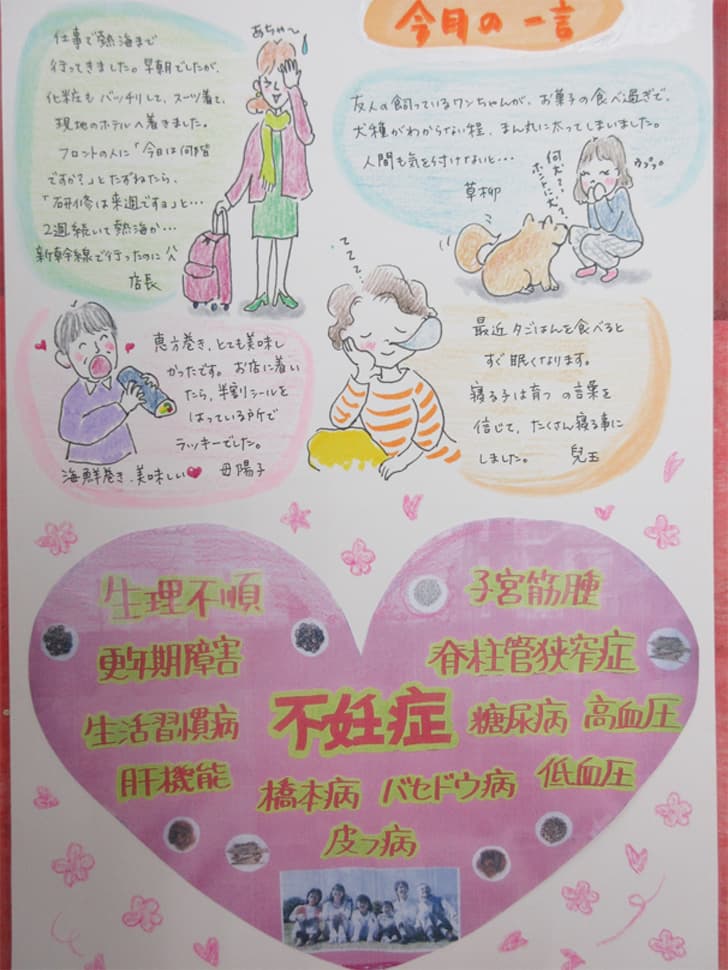 今月の一言
あちゃ〜
仕事で熱海まで
行ってきました。早朝でしたが、
化粧もバッチリして、スーツ着て、
現地のホテルへ着きました。
フロントの人に「今日は何階
ですか?」とたずねたら、
「研修は来週ですョ」と…
2週続いて熱海か…
新幹線で行ったのに
店長
友人の飼っているワンちゃんが、お菓子の食べ過ぎで、
犬種がわからない程、まん丸に太ってしまいました。
人間も気を付けないと…
草柳
何犬?
ホントに犬?
ウププ。
恵方巻き、とても美味し
かったです。お店に着い
たら、半割シールを
はっている所で
ラッキーでした。
海鮮巻き、美味しい♥ 母陽子
ててて…
最近夕ごはんを食べると
すぐ眠くなります。
寝る子は育つ の言葉を
信じて、たくさん寝る事に
しました。 兒玉
生理不順
子宮筋腫
更年期障害
脊柱管狭窄症
生活習慣病
不妊症
糖尿病
高血圧
肝機能
橋本病
バセドウ病
低血圧
皮フ病